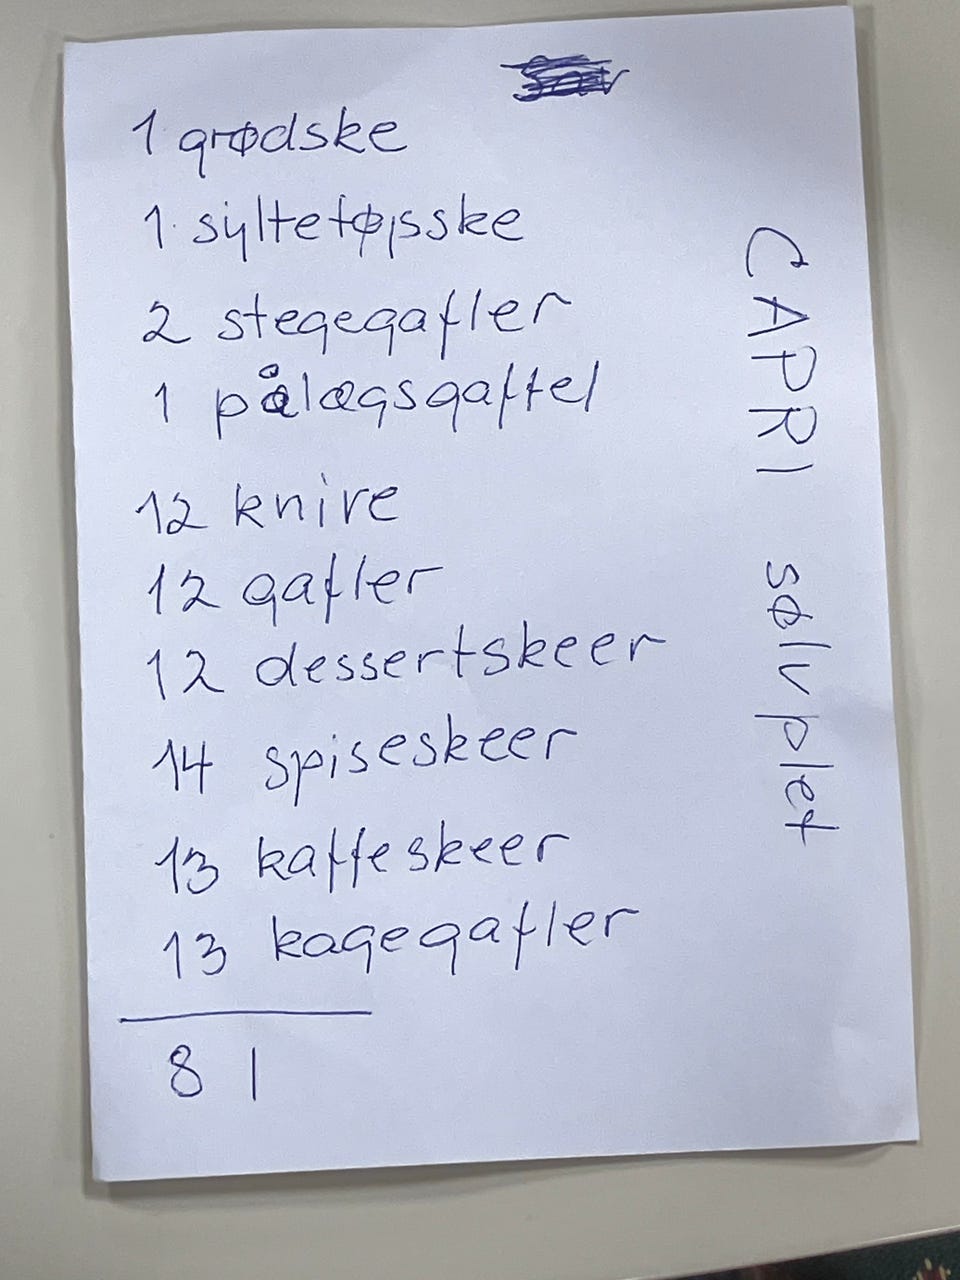 1 grødske
1 syltetøjsske
2 stegegafler
1 pålægsgaffel
12 knive
12 gafler
12 dessertskeer
14 spiseskeer
13 kaffeskeer
13 kagegafler
81
CAPRI sølvplet